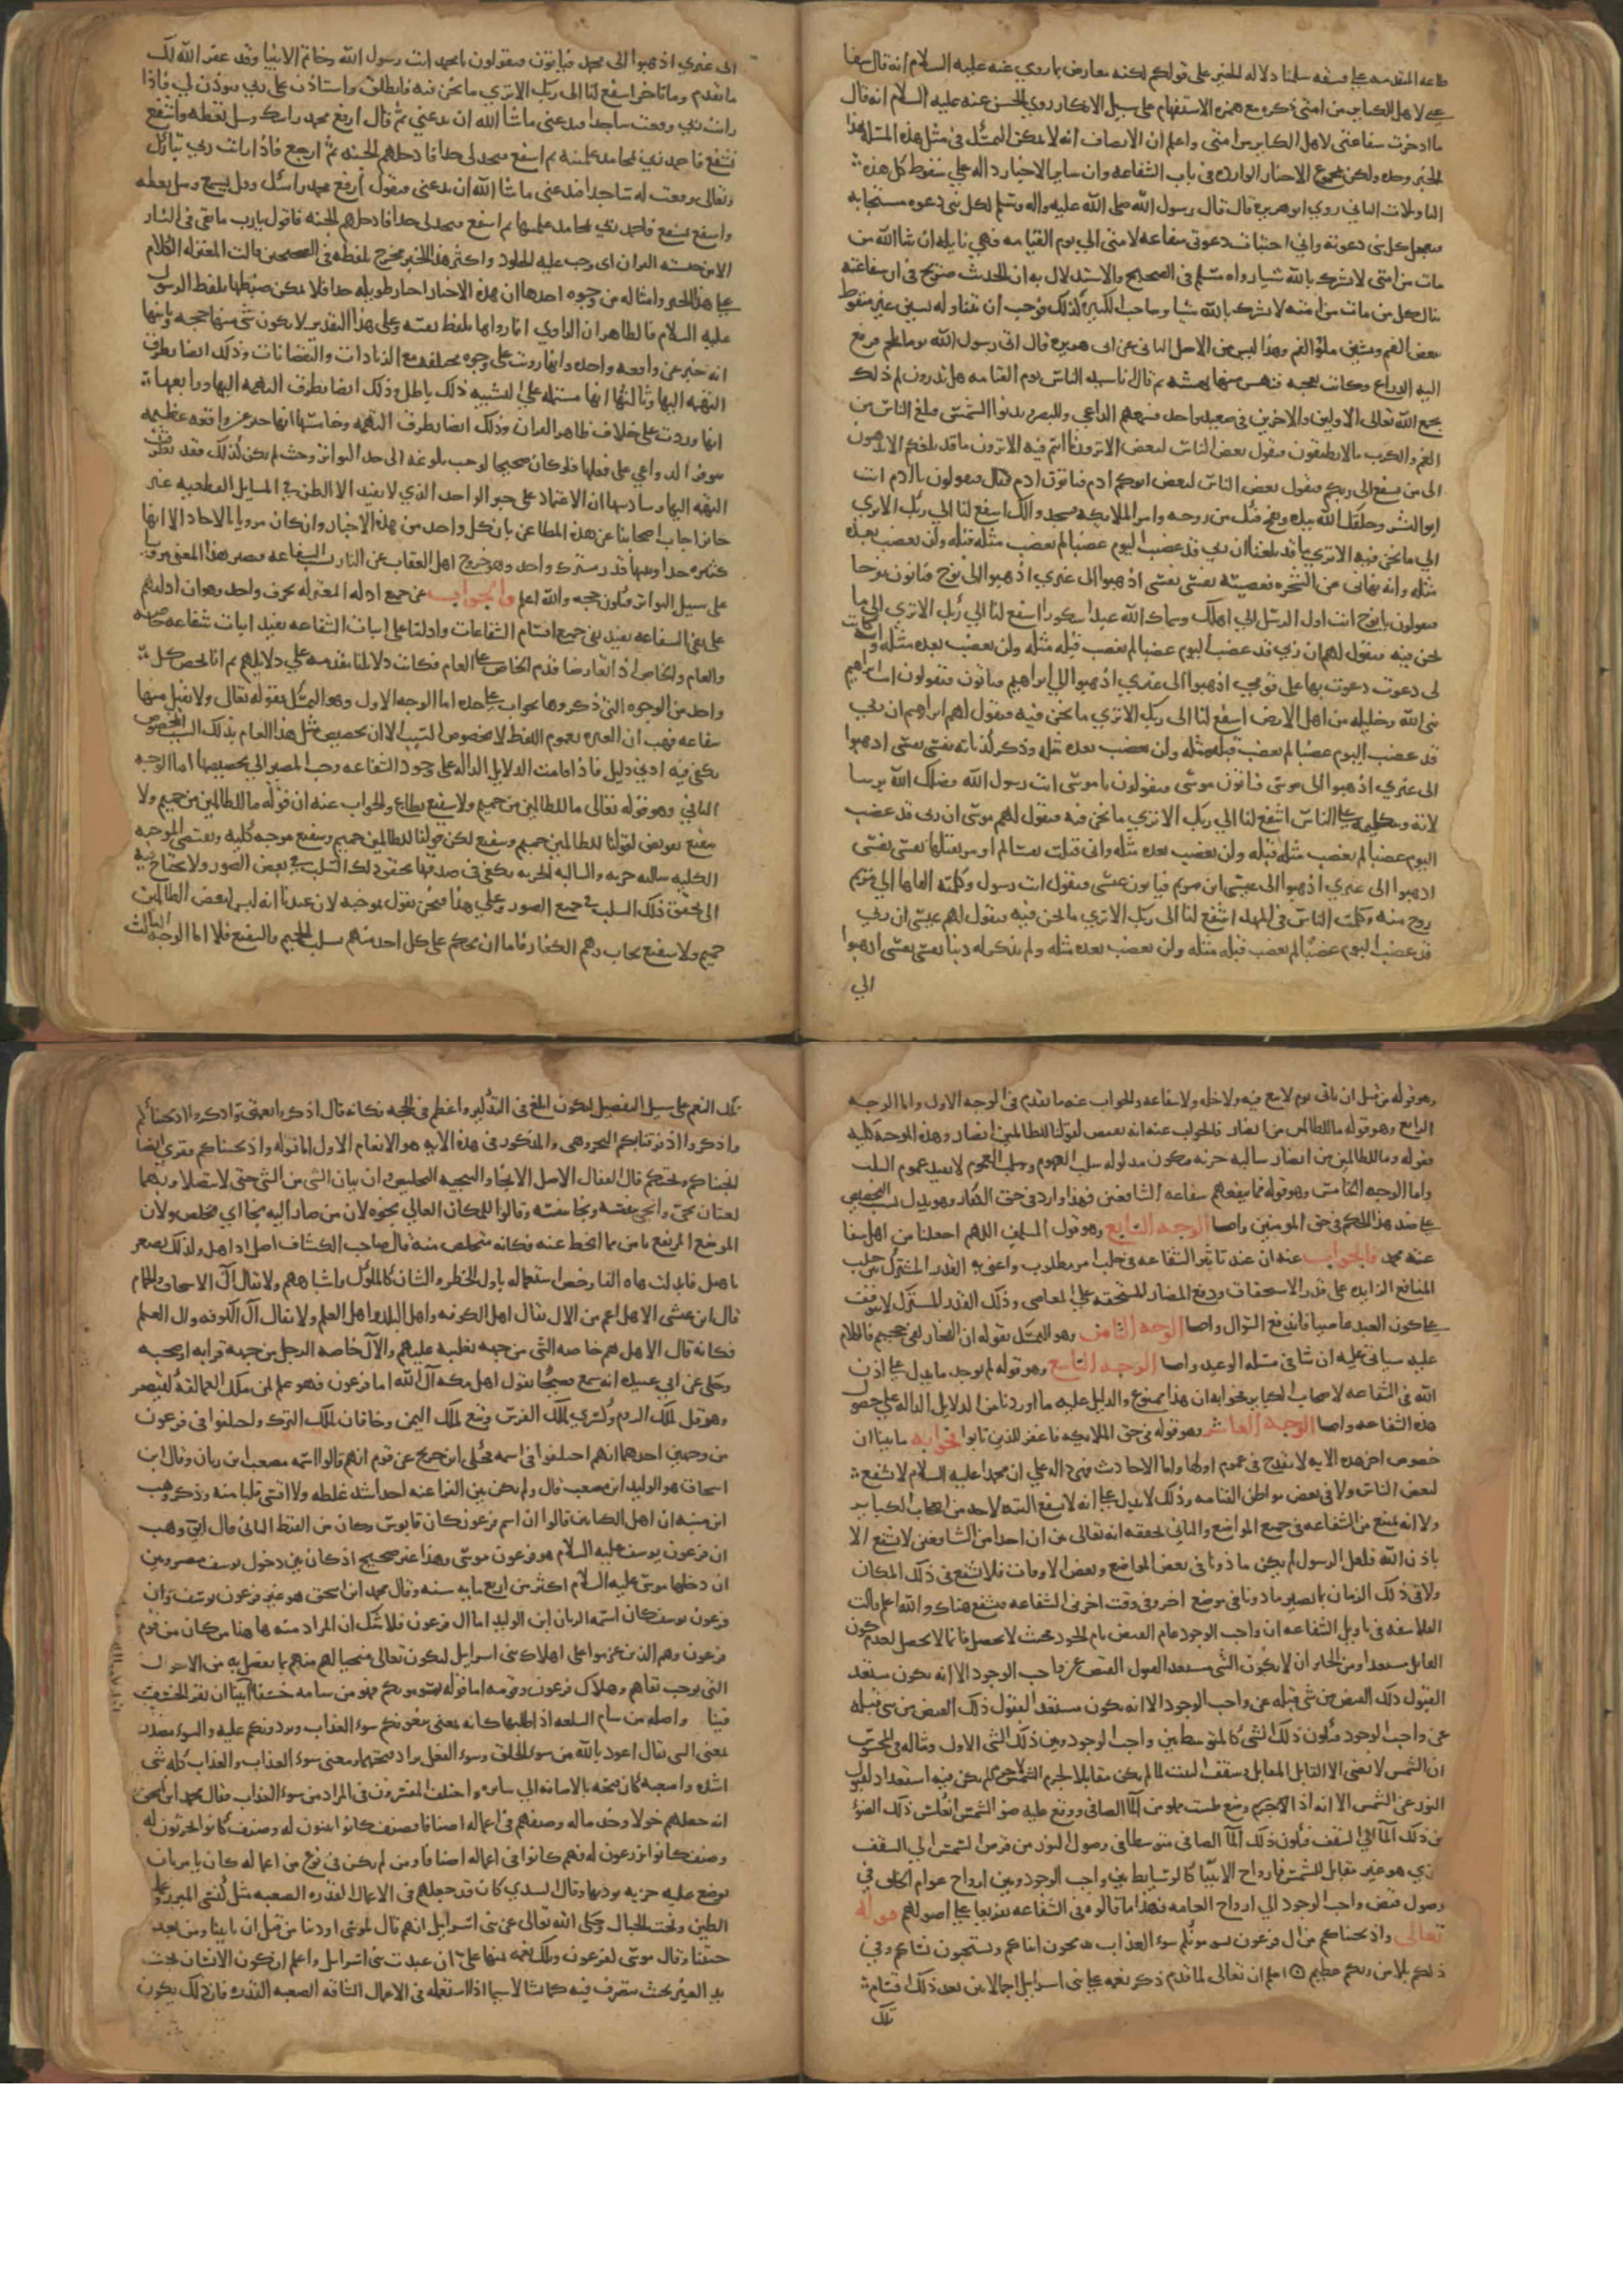 طاعه المقدمه على فسقه سلمنا دلاله الخبر على قولكم لكنه معارض بما روي عنه عليه السلام انه قال شفا
عتي لاهل الكباير من امتي ذكره مع همزه الاستفهام على سبيل الانكار روي الحسن عنه عليه السلام انه قال
ما ادخرت شفاعتي لاهل الكباير من امتي واعلم ان الانصاف انه لا يمكن التمسك في مثل هذه المسله بهذا
الخبر وحده ولكن مجموع الاخبار الوارده في باب الشفاعه وان ساير الاخبار داله على سقوط كل هذه
التاويلات الثاني روي ابو هريره قال قال رسول الله صلى الله عليه واله وسلم لكل نبي دعوه مستجابه
فتعجل كل نبي دعوته واني اختبات دعوتي شفاعه لامتي الي يوم القيامه فهي نايله ان شا الله من
مات من امتي لا يشرك بالله شيا رواه مسلم في الصحيح والاستدلال به ان الحديث صريح في ان شفاعته
تنال كل من مات من امته لا يشرك بالله شيا وصاحب الكبيره كذلك فوجب ان تناوله
اليه الذراع وكانت تعجبه فنهس منها نهسه ثم قال انا سيد الناس يوم القيامه هل تدرون لم ذلك
يجمع الله تعالى الاولين والاخرين في صعيد واحد فيسمعهم الداعي وتدنوا الشمس فبلغ الناس من
الغم والكرب ما لا يطيقون فيقول بعض الناس لبعض الا ترون ما انتم فيه الا ترون ما قد بلغكم الا تذهبون
الى من يشفع الى ربكم فيقول بعض الناس لبعض ابوكم ادم فياتون ادم فيقولون يا ادم انت
ابو البشر وخلقك الله بيده ونفخ فيك من روحه وامر الملايكه فسجدوا لك اشفع لنا الي ربك الا تري
الي ما نحن فيه الا تري ما قد بلغنا ان ربي قد غضب اليوم غضبا لم يغضب مثله قبله ولن يغضب بعده
مثله وانه نهاني عن الشجره فعصيته نفسي نفسي اذهبوا الى غيري اذهبوا الى نوح فياتون نوحا
فيقولون يا نوح انت اول الرسل الي اهل وسماك الله عبدا شكورا اشفع لنا الي ربك الا تري الي ما
نحن فيه فيقول لهم ان ربي قد غضب اليوم غضبا لم يغضب قبله مثله ولن يغضب بعده مثله وانه كانت
لي دعوت دعوت بها على قومي اذهبوا الى غيري اذهبوا الي ابراهيم فياتون فيقولون ابراهيم
نبي الله وخليله من اهل الارض اشفع لنا الى ربك الا تري ما نحن فيه فيقول لهم ابراهيم ان ربي
قد غضب اليوم غضبا لم يغضب قبله مثله ولن يغضب بعده مثله وذكر كذباته نفسي نفسي اذهبوا
الى غيري اذهبوا الى موسى فياتون موسى فيقولون يا موسى انت رسول الله فضلك الله برسا
لاته وبكلمته على الناس اشفع لنا الي ربك الا تري ما نحن فيه فيقول لهم موسى ان ربي قد غضب
اليوم غضبا لم يغضب مثله قبله ولن يغضب بعده مثله واني قتلت نفسا لم اومر بقتلها نفسي نفسي
اذهبوا الى غيري اذهبوا الى عيسى ابن مريم فياتون عيسى فيقول انت رسول وكلمته القاها الي مريم
روح منه وكلمت الناس في المهد اشفع لنا الى ربك الا تري ما نحن فيه فيقول لهم عيسى ان ربي
قد غضب اليوم غضبا لم يغضب قبله مثله ولن يغضب بعده مثله ولم يذكر له ذنبا نفسي نفسي اذهبوا
الي
الى غيري اذهبوا الى محمد فياتون فيقولون يا محمد انت رسول الله وخاتم الانبيا وقد غفر الله لك
ما تقدم وما تاخر اشفع لنا الى ربك الا تري ما نحن فيه فانطلق واستاذن على ربي فيوذن لي فاذا
رايت ربي وقعت ساجدا فيدعني ما شا الله ان يدعني ثم قال ارفع محمد راسك وسل تعطه واشفع
تشفع فاحمد ربي بمحامد علمنيه ثم اشفع فيحد لي حدا فادخلهم الجنه ثم ارجع فاذا رايت ربي تبارك
وتعالى وقعت له ساجدا فيدعني ما شا الله ان يدعني فيقول ارفع محمد راسك وقل يسمع وسل تعطه
واشفع تشفع فاحمد ربي بمحامد علمنيها ثم اشفع فيحد لي حدا فادخلهم الجنه فاقول يا رب ما بقي في النار
الا من حبسه القران اى وجب عليه الخلود واكثر هذا الخبر مخرج بلفظه في الصحيحين قالت المعتزله الكلام
على هذا الخبر وامثاله من وجوه احدها ان هذه الاخبار اخبار طويله جدا فلا يمكن ضبطها بلفظ الرسول
عليه السلام فالظاهر ان الراوي انما رواها بلفظ نفسه وعلى هذا التقدير لا يكون شي منها حجه وثانيها
انه خبر عن واقعه واحده وانها رويت على وجوه مختلفه مع الزيادات والنقصانات وذلك ايضا يطرق
التهمه اليها وثالثها انها مشتمله على التشبيه ذلك باطل وذلك ايضا يطرق التهمه اليها ورابعها
انها وردت على خلاف ظاهر القران وذلك ايضا يطرق التهمه وخامسها انها خبر عن واقعه عظيمه
تتوفر الدواعي على نقلها فلو كان صحيحا لوجب بلوغه الى حد التواتر وحيث لم يكن كذلك فقد تطرقت
التهمه اليها وسادسها ان الاعتماد على خبر الواحد الذي لا يفيد الا الظن في المسايل القطعيه غير
جايز اجاب اصحابنا عن هذه المطاعن بان كل واحد من هذه الاخبار وان كان مرويا بالاحاد الا انها
كثيره جدا وبينها قدر مشترك واحد وهو خروج اهل العقاب عن النار بسبب الشفاعه فيصير هذا المعنى مرويا
على سبيل التواتر فيكون حجه والله اعلم والجواب عن جميع ادله المعتزله بحرف واحد وهو ان ادلتهم
على نفي الشفاعه تفيد نفي جميع اقسام الشفاعات وادلتنا على اثبات الشفاعه تفيد اثبات شفاعه خاصه
والعام والخاص اذا تعارضا قدم الخاص على العام فكانت دلايلنا مقدمه على دلايلهم ثم انا نخص كل
واحد من الوجوه التي ذكروها بجواب على حده اما الوجه الاول وهو التمسك بقوله تعالى ولا تقبل منها
شفاعه فهب ان العبره بعموم اللفظ لا بخصوص السبب الا ان تخصيص مثل هذا العام بذلك السبب المخصوص
يكفي فيه ادني دليل فاذا قامت الدلايل الداله على وجود الشفاعه وجب المصير الي تخصيصها اما الوجه
الثاني وهو قوله تعالى ما للظالمين من حميم ولا شفيع يطاع والجواب عنه ان قوله ما للظالمين من حميم ولا
شفيع نقيض لقولنا للظالمين حميم وشفيع لكن قولنا للظالمين حميم وشفيع موجبه كليه ونقيض الموجبه
الكليه سالبه جزيه والسالبه الجزيه يكفي في صدقها تحقق ذلك السلب في بعض الصور ولا يحتاج فيه
الى تحقق ذلك السلب في جميع الصور وعلي هذا فنحن نقول بموجبه لان عندنا انه ليس لبعض الظالمين
حميم ولا شفيع يجاب وهم الكفار فاما ان يحكم على كل احد منهم بسلب الحميم والشفيع فلا اما الوجه الثالث
وهو قوله من قبل ان ياتي يوم لا بيع فيه ولا خله ولا شفاعه والجواب عنه ما تقدم في الوجه الاول واما الوجه
الرابع وهو قوله ما للظالمين من انصار فالجواب عنه انه نقيض لقولنا للظالمين انصار وهذه الموجبه كليه
فقوله وما للظالمين من انصار سالبه جزيه فيكون مدلوله سلب العموم وسلب العموم لا يفيد عموم السلب
واما الوجه الخامس وهو قوله فما تنفعهم شفاعه الشافعين فهذا وارد في حق الكفار وهو يدل بسبب التخصيص
على ضد هذا الحكم في حق المومنين واما الوجه السابع وهو قول المسلمين اللهم اجعلنا من اهل شفا
عته محمد فالجواب عنه ان عندنا تاثير الشفاعه في جلب امر مطلوب واعني به القدر المشترك بين جلب
المنافع الزايده على قدر الاستحقاق ودفع المضار المستحقه على المعاصي وذلك القدر المشترك لا يتوقف
على كون العبد عاصيا فاندفع السوال واما الوجه الثامن وهو التمسك بقوله ان الفجار لفي جحيم فالكلام
عليه سياتي عليه ان شا في مسله الوعيد واما الوجه التاسع وهو قوله لم يوجد ما يدل على اذن
الله في الشفاعه لاصحاب الكباير فجوابه ان هذا ممنوع والدليل عليه ما اوردنا من الدلايل الداله على حصول
هذه الشفاعه واما الوجه العاشر وهو قوله في حق الملايكه فاغفر للذين تابوا فجوابه ما بينا ان
خصوص اخر هذه الايه لا يقدح في عموم اولها واما الاحاديث فهي داله على ان محمدا عليه السلام لا يشفع
لبعض الناس ولا في بعض مواطن القيامه وذلك لا يدل على انه لا يشفع البته لاحد من اصحاب الكباير
ولا انه يمتنع من الشفاعه في جميع المواضع والثاني تحققه انه تعالى بين ان احدا من الشافعين لا يشفع الا
باذن الله فلعل الرسول لم يكن ماذونا في بعض المواضع وبعض الاوقات فلا يشفع في ذلك المكان
ولا في ذلك الزمان ثم يصير ماذونا في موضع اخر وفي وقت اخر في الشفاعه فيشفع هناك والله اعلم قالت
الفلاسفه في تاويل الشفاعه ان واجب الوجود عام الفيض تام الجود فحيث لا يحصل فانما لا يحصل لعدم كون
القابل مستعدا ومن الجايز ان لا يكون الشي مستعدا لقبول الفيض عن واجب الوجود الا انه يكون مستعدا
لقبول ذلك الفيض من شي قبله عن واجب الوجود الا انه يكون مستعدا لقبول ذلك الفيض من شي قبله
عن واجب الوجود فيكون ذلك الشي كالمتوسط بين واجب الوجود وبين ذلك الشي الاول ومثاله في المحسوس
ان الشمس لا تضي الا القابل المقابل وسقف البيت لما لم يكن مقابلا لجرم الشمس لا جرم لم يكن فيه استعداد لقبول
النور عن الشمس الا انه اذا وضع طست مملو من الما الصافي ووقع عليه ضو الشمس انعكس ذلك الضو
من ذلك الما الي السقف فيكون ذلك الما الصافي متوسطا في وصول النور من قرص الشمس الى السقف
الذي هو غير مقابل للشمس فارواح الانبيا كالوسايط بين واجب الوجود وبين ارواح عوام الخلق في
وصول فيض واجب الوجود الي ارواح العامه فهذا ما قالوه في الشفاعه تفريعا على اصولهم قوله
تعالى واذ نجيناكم من ال فرعون يسومونكم سوء العذاب يذبحون ابناكم ويستحيون نساكم وفي
ذلكم بلا من ربكم عظيم اعلم ان تعالى لما قدم ذكر نعمه على بني اسراييل اجمالا بين بعد ذلك اقسام
تلك
تلك النعم على سبيل التفصيل ليكون ابلغ في التذكير واعظم في الحجه فكانه قال اذكروا نعمتي واذكروا اذ نجيناكم
واذكروا اذ فرقنا بكم البحر وهي والمذكور في هذه الايه هو الانعام الاول اما قوله واذ نجيناكم فقري ايضا
انجيناكم ونجيتكم قال القفال الاصل الانجا والتنجيه التخليص وان بيان الشي من الشي حتى لا يتصلا وهما
لغتان نجى وانجى بنفسه ونجا بنفسه وقالوا للمكان العالي نجوه لان من صار اليه نجا اي تخلص ولان
الموضع المرتفع باين مما انحط عنه فكانه متخلص منه قال صاحب الكشاف اصل ال اهل ولذلك يصغر
باهيل فابدلت هاه الفا وخص استعماله باولي الخطر والشان كالملوك واشباههم ولا يقال ال الاسكاف والحجام
قال ابن عيسى الاهل اعم من الال يقال اهل الكوفه واهل البلد واهل العلم ولا يقال ال الكوفه وال العلم
فكانه قال الاهل هم خاصه الشي من جهه تغليبه عليهم والال خاصه الرجل من جهه قرابه او صحبه
وحكى عن ابي عبيده انه سمع فصيحا يقول اهل مكه ال الله اما فرعون فهو علم لمن ملك العمالقه كقيصر
وهرقل لملك الروم وكسري لملك الفرس وتبع لملك اليمن وخاقان لملك الترك واختلفوا في فرعون
من وجهين احدهما انهم اختلفوا في اسمه فحكى ابن جريج عن قوم انهم قالوا اسمه مصعب ابن ريان وقال ابن
اسحاق هو الوليد ابن مصعب قال ولم يكن من الفراعنه احد اشد غلظه ولا اقسى قلبا منه وذكر وهب
ابن منبه ان اهل الكتابين قالوا ان اسم فرعون كان قابوس وكان من القبط الثاني قال ابن وهب
ان فرعون يوسف عليه السلام هو فرعون موسى وهذا غير صحيح اذ كان بين دخول يوسف مصر وبين
ان دخلها موسى عليه السلام اكثر من اربع مايه سنه وقال محمد ابن اسحق هو غير فرعون يوسف وان
فرعون يوسف كان اسمه الريان ابن الوليد اما ال فرعون فلا شك ان المراد منه هاهنا من كان من قوم
فرعون وهم الذين عزموا على اهلاك بني اسراييل ليكون تعالى منجيا لهم منهم بما تفضل به من الاحوال
التي توجب بقاهم وهلاك فرعون وقومه اما قوله يسومونكم فهو من سامه خسفا
فينا واصله من سام السلعه اذا طلبها كانه بمعنى يبغونكم سوء العذاب ويريدونكم عليه والسوء مصدر
بمعنى السي يقال اعوذ بالله من سوء الخلق وسوء الفعل يراد قبحهما ومعنى سوء العذاب والعذاب كله سي
اشده واصعبه كان قبحه بالاضافه الي سايره واختلف المفسرون في المراد من سوء العذاب فقال محمد ابن اسحق
انه جعلهم خولا وخدما له وصنفهم في اعماله اصنافا فصنف كانوا يبنون له وصنف كانوا يحرثون له
وصنف كانوا يزرعون له فهم كانوا في اعماله اصنافا ومن لم يكن في نوع من اعماله كان يامر بان
يوضع عليه جزيه يوديها وقال السدي كان قد جعلهم في الاعمال القذره الصعبه مثل كنس المبرز وعمل
الطين ونحت الجبال وحكى الله تعالى عن بني اسراييل انهم قال لموسى اوذينا من قبل ان تاتينا ومن بعد ما
جيتنا وقال موسى لفرعون وتلك نعمه تمنها علي ان عبدت بني اسراييل واعلم ان كون الانسان تحت
يد الغير بحيث يتصرف فيه كما يشا لا سيما اذا استعمله في الاعمال الشاقه الصعبه القذره فان ذلك يكون